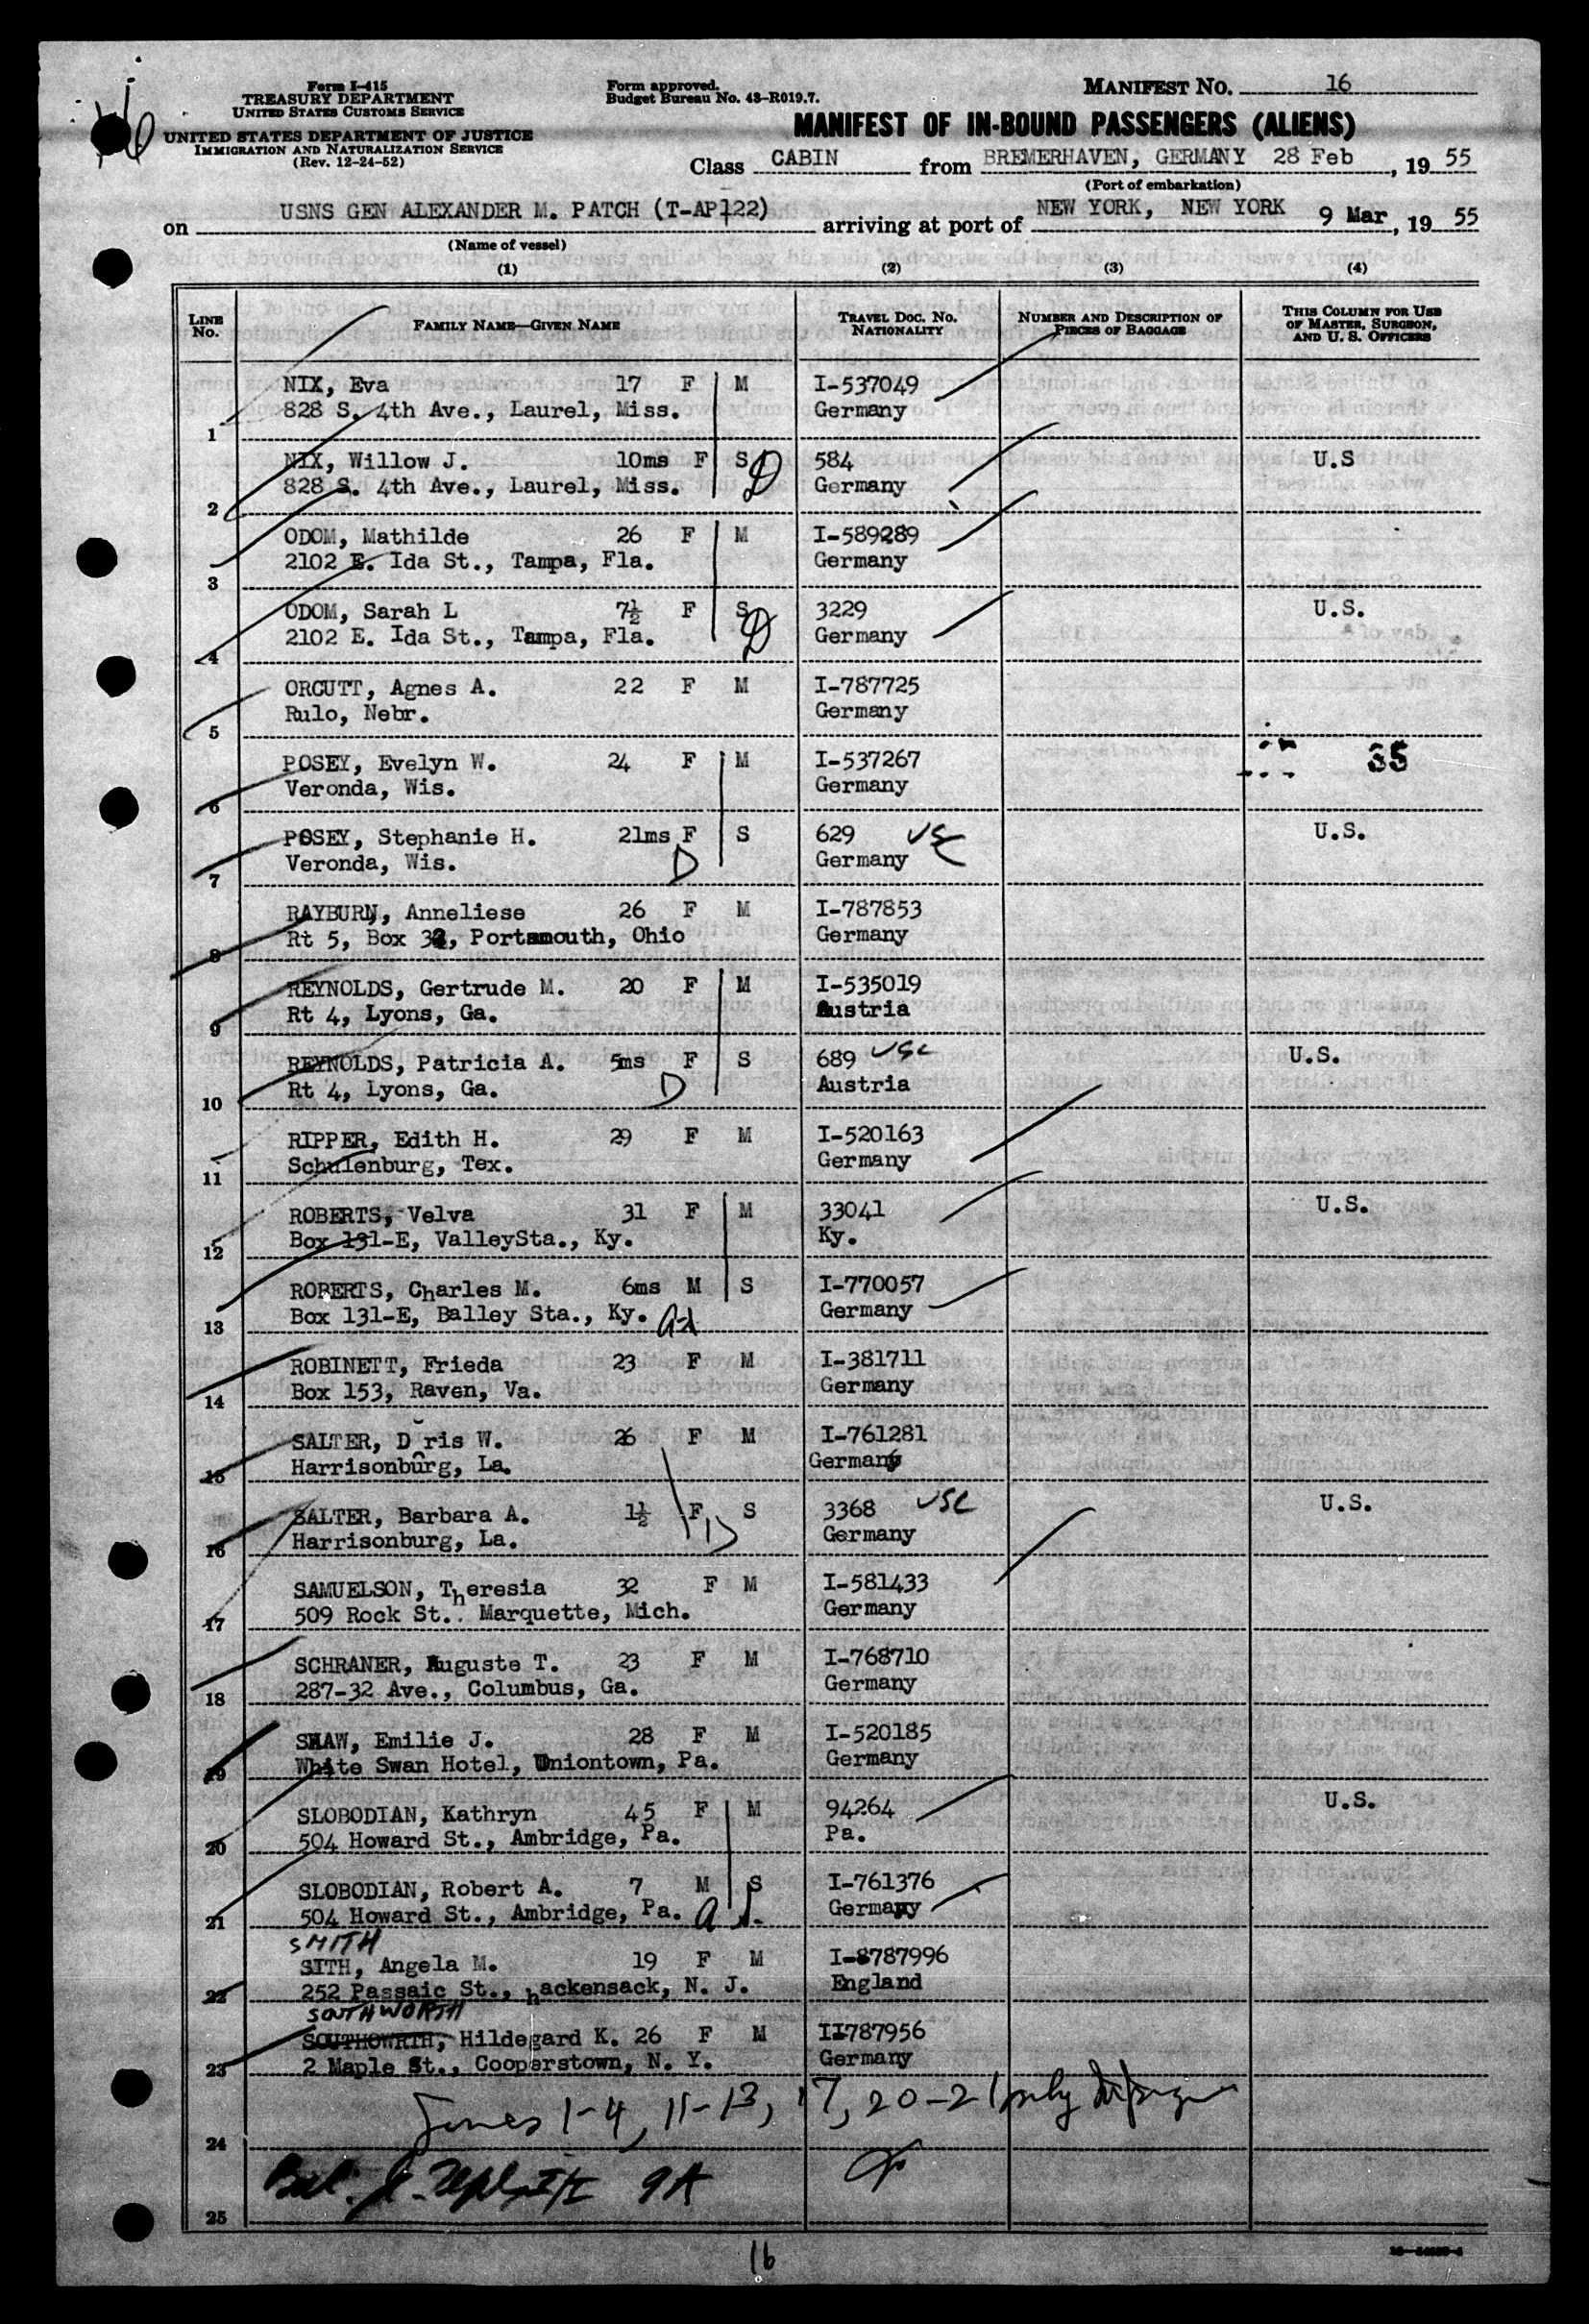 Form I-415
TREASURY DEPARTMENT
UNITED STATES CUSTOMS SERVICE
UNITED STATES DEPARTMENT OF JUSTICE
IMMIGRATION AND NATURALIZATION SERVICE
(Rev. 12-24-52)
Form approved.
Budget Bureau No. 43-R019.7.
MANIFEST NO. 16
MANIFEST OF IN-BOUND PASSENGERS (ALIENS)
Class CABIN from BREMERHAVEN, GERMANY 28 Feb, 19 55
(Port of embarkation)
on USNS GEN ALEXANDER M. PATCH (T-AP122) arriving at port of NEW YORK, NEW YORK 9 Mar, 19 55
(Name of vessel)
(1) (2) (3) (4)
LINE NO. FAMILY NAME—GIVEN NAME TRAVEL DOC. NO. NATIONALITY NUMBER AND DESCRIPTION OF PIECES OF BAGGAGE THIS COLUMN FOR USE OF MASTER, SURGEON, AND U. S. OFFICERS
NIX, Eva 17 F M I-537049
828 S. 4th Ave., Laurel, Miss. Germany
1
NIX, Willow J. 10ms F S D 584 U.S
828 S. 4th Ave., Laurel, Miss. Germany
2
ODOM, Mathilde 26 F M I-589289
2102 E. Ida St., Tampa, Fla. Germany
3
ODOM, Sarah L 7½ F S D 3229 U.S.
2102 E. Ida St., Tampa, Fla. Germany
4
ORCUTT, Agnes A. 22 F M I-787725
Rulo, Nebr. Germany
5
POSEY, Evelyn W. 24 F M I-537267 35
Veronda, Wis. Germany
6
POSEY, Stephanie H. 21ms F S 629 USC U.S.
Veronda, Wis. D Germany
7
RAYBURN, Anneliese 26 F M I-787853
Rt 5, Box 32, Portsmouth, Ohio Germany
8
REYNOLDS, Gertrude M. 20 F M I-535019
Rt 4, Lyons, Ga. Austria
9
REYNOLDS, Patricia A. 5ms F S 689 USC U.S.
Rt 4, Lyons, Ga. D Austria
10
RIPPER, Edith H. 29 F M I-520163
Schulenburg, Tex. Germany
11
ROBERTS, Velva 31 F M 33041 U.S.
Box 131-E, ValleySta., Ky. Ky.
12
ROBERTS, Charles M. 6ms M S I-770057
Box 131-E, Balley Sta., Ky. Germany
13
ROBINETT, Frieda 23 F M I-381711
Box 153, Raven, Va. Germany
14
SALTER, Doris W. 26 F M I-761281
Harrisonburg, La. Germany
15
SALTER, Barbara A. 1½ F S 3368 USC U.S.
Harrisonburg, La. D Germany
16
SAMUELSON, Theresia 32 F M I-581433
509 Rock St.. Marquette, Mich. Germany
17
SCHRANER, Auguste T. 23 F M I-768710
287-32 Ave., Columbus, Ga. Germany
18
SHAW, Emilie J. 28 F M I-520185
White Swan Hotel, Uniontown, Pa. Germany
19
SLOBODIAN, Kathryn 45 F M 94264 U.S.
504 Howard St., Ambridge, Pa. Pa.
20
SLOBODIAN, Robert A. 7 M S I-761376
504 Howard St., Ambridge, Pa. Germany
21
SMITH
SITH, Angela M. 19 F M I-8787996
252 Passaic St., hackensack, N. J. England
22
SOUTHWORTH
SOUTHOWRTH, Hildegard K. 26 F M II787956
2 Maple St., Cooperstown, N. Y. Germany
23
Lines 1-4, 11-13, 17, 20-21 only
24
25
16